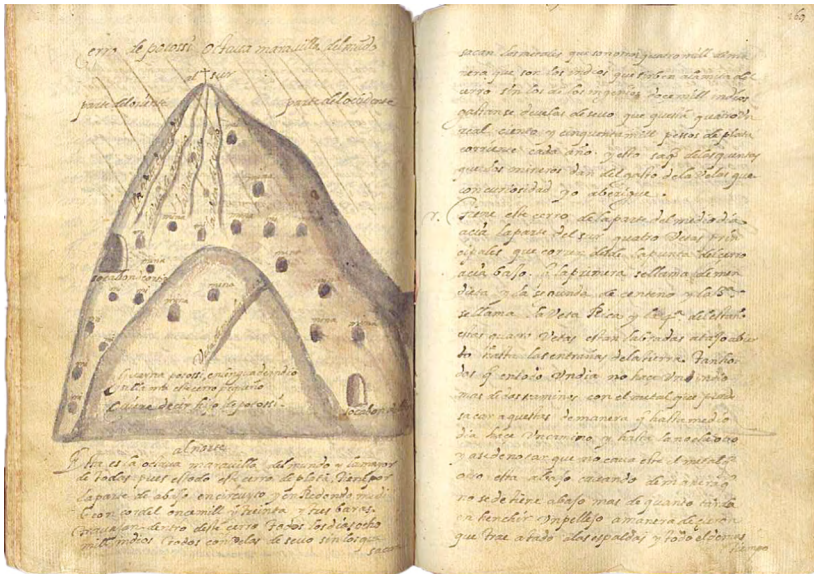 Cerro de potossi octava maravilla del mundo
al sur
parte del oriente
parte del ocidente
mina
mina
mina
mina
mina
mina
socabon
Guaina potossi, en lengua de indio
Quiere decir hijo de potossi.
socabon
al norte
Esta es la octava maravilla del mundo y la mayor
de todas pues es todo este cerro de plata. tiene por
la parte de abajo en circuyto y en Redondo
con cordel onze mill y treinta y tres baras.
travajan dentro deste cerro todos los dias ocho
mill indios todos con velas de sevo sin los que
sacan
169
sacan los metales que son otros quatro mill de ma
nera que son los indios que
cerro sin los de los ingenios doce mill indios
gastanse de velas de sevo que questa quatro Un
real ciento y cinquenta mill pesos de plata
corriente cada año y esto saq de las quentas
que los mineros dan del gasto de la velas que
con curiosidad yo aberigue.
Tiene este cerro de la parte del medio dia
acia la parte del sur quatro Vetas prin
cipales que corren desde la punta del cerro
acia bajo. la primera se llama de men
dieta y la segunda de centeno y la
se llama la Veta Rica y la del estaño
estas quatro Vetas estan labradas a tajo abier
to hasta las entrañas de la tierra tan hon
das q en todo Un dia no hace Un indio
mas de dos caminos con el metal que
sacar a questas de manera q hasta medio
dia hace Un camino y hasta la noche otro
y a se de notar que no cava este el metal q
otro esta abajo cavando de manera q
no se detiene abajo mas de quanto tarda
en henchir Un pellejo a manera de
que trae atado a las espaldas y todo el demas
tiempo